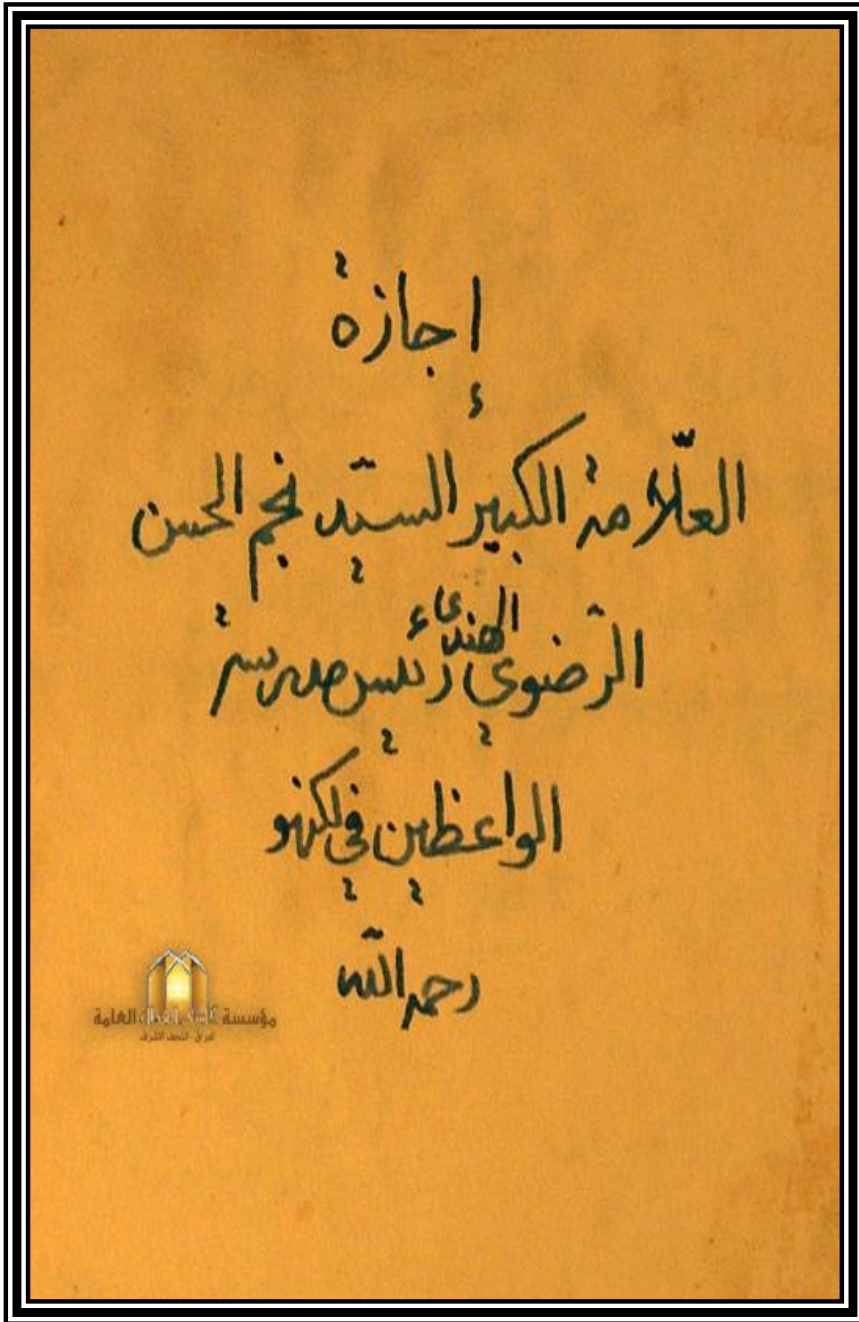 إجازة
العلّامة الكبير السيّد نجم الحسن
الرّضوي الهندي رئيس مدرسة
الواعظين في لكنهو
رحمه الله
مؤسسة كاشف الغطاء العامة
العراق - النجف الاشرف